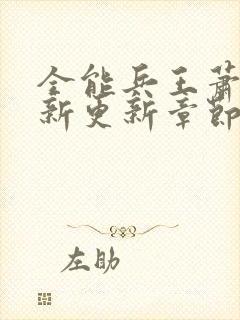 全能兵王萧
新更新章节
左助